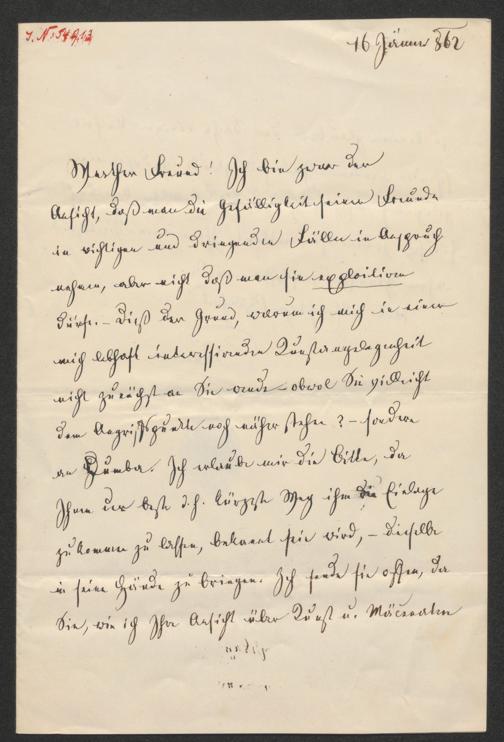 I. N. 549,13
16 Jänner 862
Werther Freund! Ich bin zwar der
Ansicht, daß man die Gefälligkeit seiner Freunde
in wichtigen und dringenden Fällen in Anspruch
nehmen, aber nicht daß man sie exploitiren
dürfe. – Dieß der Grund, warum ich mich in einer
mich lebhaft interessirenden Kunstangelegenheit
nicht zunächst an Sie wende – obwol Sie vielleicht
dem Angriffspunkte noch näher stehen? – sondern
an Dumba. Ich erlaube mir die Bitte, da
Ihnen der beste d. h. kürzeste Weg ihm die Einlage
zukommen zu lassen, bekannt sein wird, – dieselbe
in seine Hände zu bringen. Ich sende sie offen, da
Sie, wie ich Ihre Ansicht über Kunst u. Mäcenaten